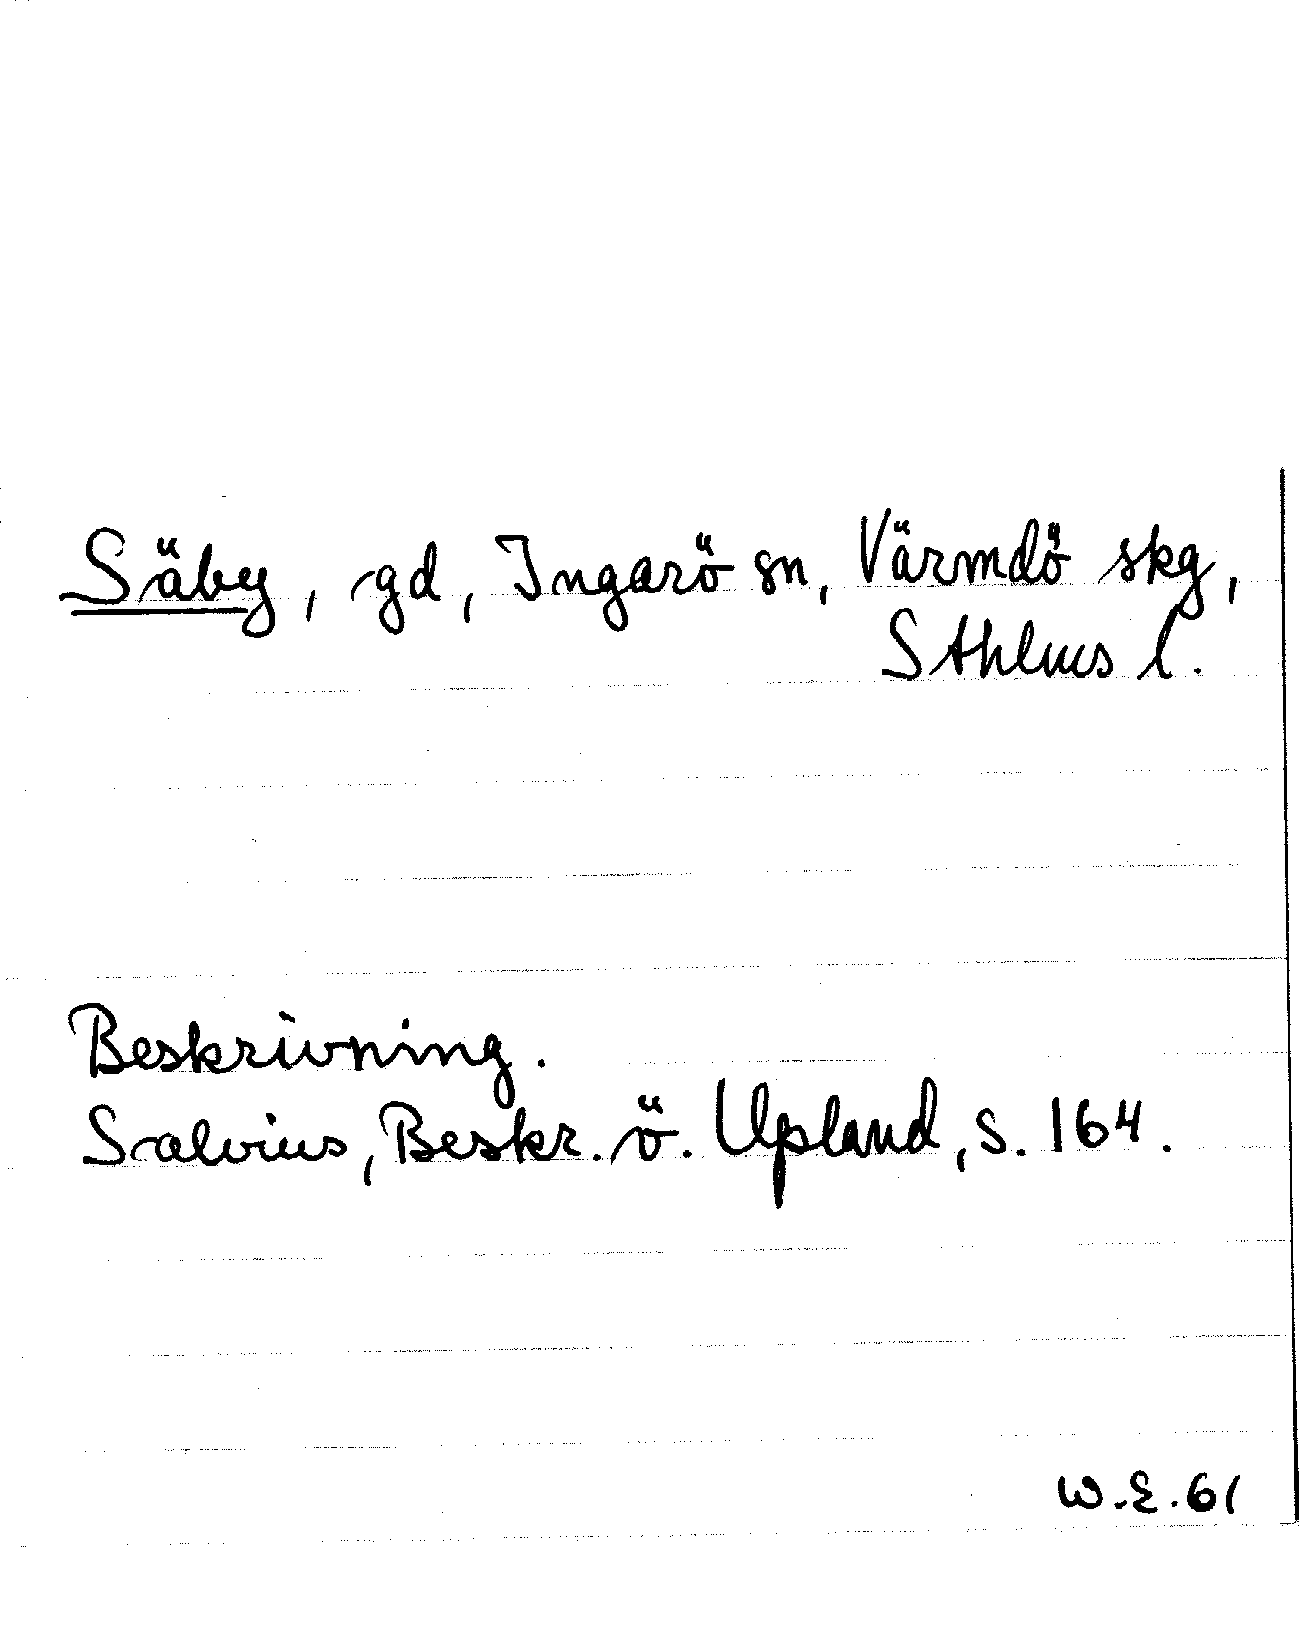 Säby, gd, Ingarö sn, Värmdö skg,
Sthlms l.
Beskrivning.
Salvius, Beskr. ö. Upland, s. 164.
W.E.61